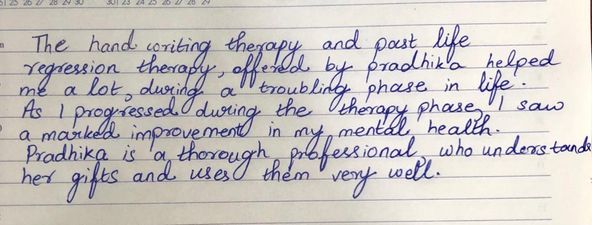 The hand writing therapy and past life
regression therapy, offered by pradhika helped
me a lot, during a troubling phase in life.
As I progressed during the therapy phase, I saw
a marked improvement in my mental health.
Pradhika is a thorough professional, who understands
her gifts and uses them very well.